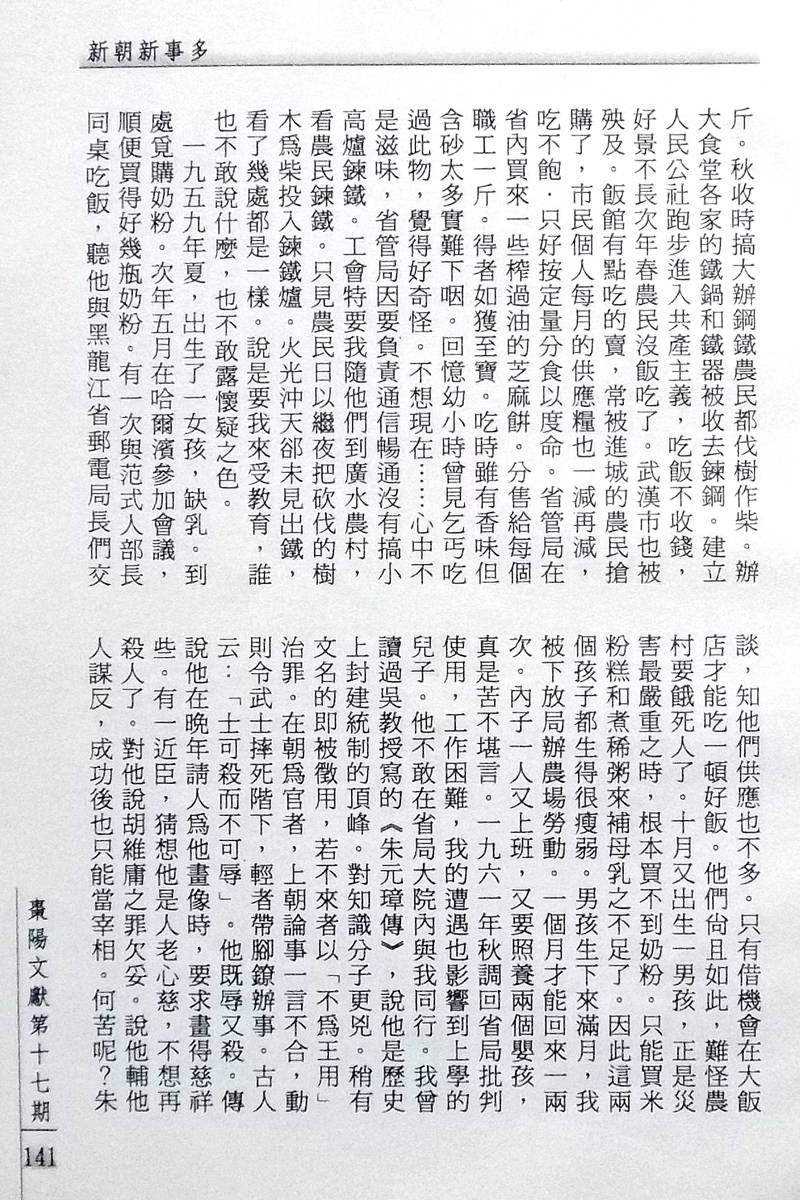 新朝新事多
斤。秋收時搞大辦鋼鐵農民都伐樹作柴。辦
大食堂各家的鐵鍋和鐵器被收去鍊鋼。建立
人民公社跑步進入共產主義，吃飯不收錢，
好景不長次年春農民沒飯吃了。武漢市也被
殃及。飯館有點吃的賣，常被進城的農民搶
購了，市民個人每月的供應糧也一減再減，
吃不飽．只好按定量分食以度命。省管局在
省內買來一些榨過油的芝麻餅。分售給每個
職工一斤。得者如獲至寶。吃時雖有香味但
含砂太多實難下咽。回憶幼小時曾見乞丐吃
過此物，覺得好奇怪。不想現在……心中不
是滋味，省管局因要負責通信暢通沒有搞小
高爐鍊鐵。工會特要我隨他們到廣水農村，
看農民鍊鐵。只見農民日以繼夜把砍伐的樹
木爲柴投入鍊鐵爐。火光沖天卻未見出鐵，
看了幾處都是一樣。說是要我來受教育，誰
也不敢說什麼，也不敢露懷疑之色。
一九五九年夏，出生了一女孩，缺乳。到
處覓購奶粉。次年五月在哈爾濱參加會議，
順便買得好幾瓶奶粉。有一次與范式人部長
同桌吃飯，聽他與黑龍江省郵電局長們交
談，知他們供應也不多。只有借機會在大飯
店才能吃一頓好飯。他們尙且如此，難怪農
村要餓死人了。十月又出生一男孩，正是災
害最嚴重之時，根本買不到奶粉。只能買米
粉糕和煮稀粥來補母乳之不足了。因此這兩
個孩子都生得很瘦弱。男孩生下來滿月，我
被下放局辦農場勞動。一個月才能回來一兩
次。內子一人又上班，又要照養兩個嬰孩，
真是苦不堪言。一九六一年秋調回省局批判
使用，工作困難，我的遭遇也影響到上學的
兒子。他不敢在省局大院內與我同行。我曾
讀過吳教授寫的《朱元璋傳》，說他是歷史
上封建統制的頂峰。對知識分子更兇。稍有
文名的即被徵用，若不來者以「不爲王用」
治罪。在朝爲官者，上朝論事一言不合，動
則令武士摔死階下，輕者帶腳鐐辦事。古人
云：「士可殺而不可辱」。他既辱又殺。傳
說他在晚年請人爲他畫像時，要求畫得慈祥
些。有一近臣，猜想他是人老心慈，不想再
殺人了。對他說胡維庸之罪欠妥。說他輔他
人謀反，成功後也只能當宰相。何苦呢？朱
棗陽文獻第十七期
141